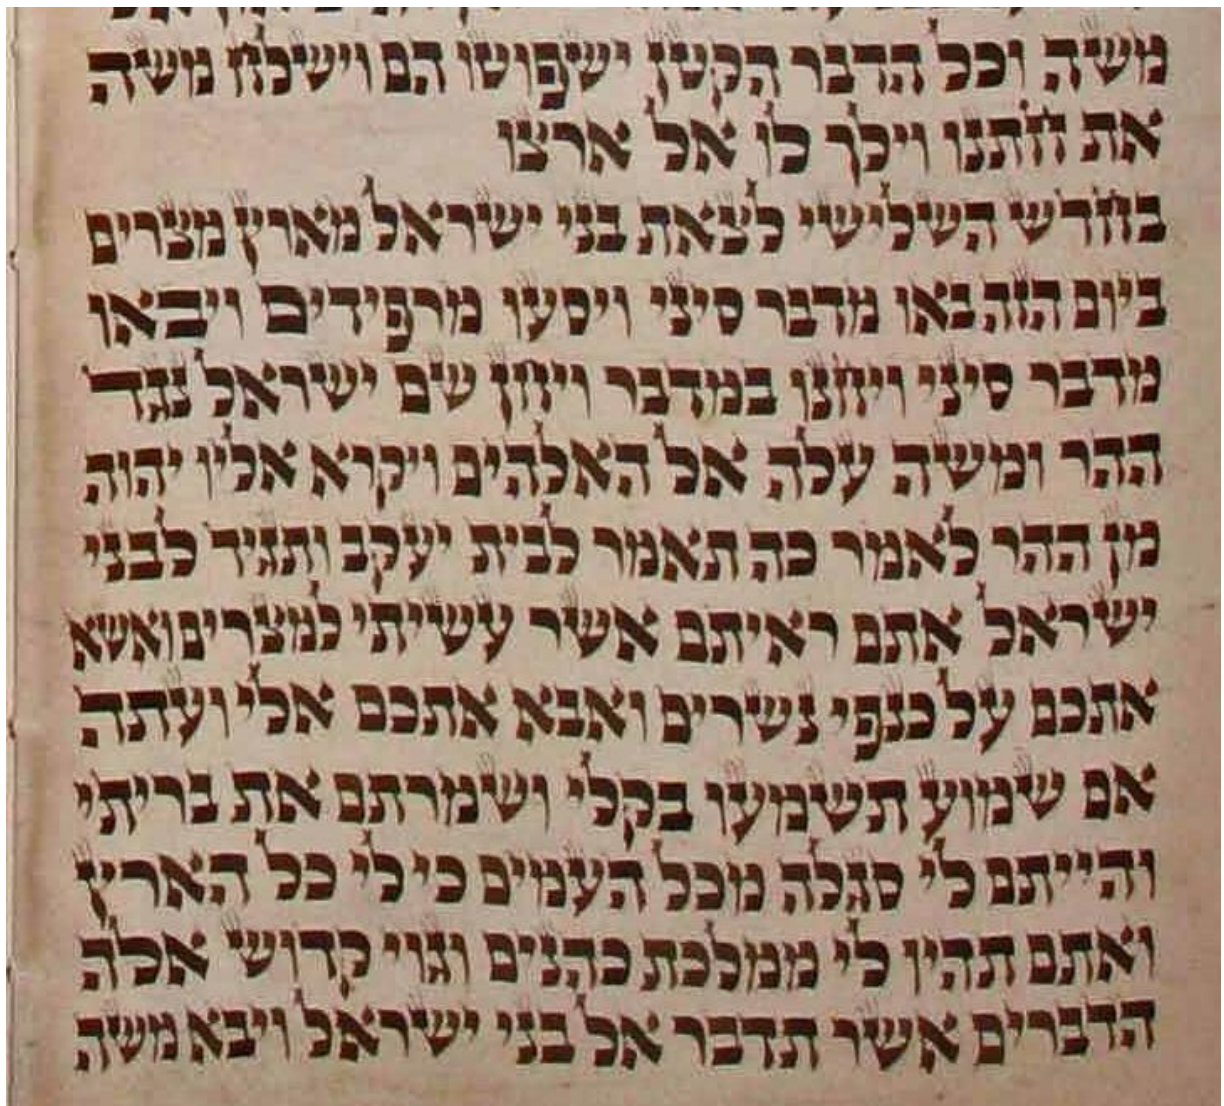 משה וכל הדבר הקטן ישפוטו הם וישלח משה
את חתנו וילך לו אל ארצו
בחדש השלישי לצאת בני ישראל מארץ מצרים
ביום הזה באו מדבר סיני ויסעו מרפידים ויבאו
מדבר סיני ויחנו במדבר ויחן שם ישראל נגד
ההר ומשה עלה אל האלהים ויקרא אליו יהוה
מן ההר לאמר כה תאמר לבית יעקב ותגיד לבני
ישראל אתם ראיתם אשר עשיתי למצרים ואשא
אתכם על כנפי נשרים ואבא אתכם אלי ועתה
אם שמוע תשמעו בקלי ושמרתם את בריתי
והייתם לי סגלה מכל העמים כי לי כל הארץ
ואתם תהיו לי ממלכת כהנים וגוי קדוש אלה
הדברים אשר תדבר אל בני ישראל ויבא משה